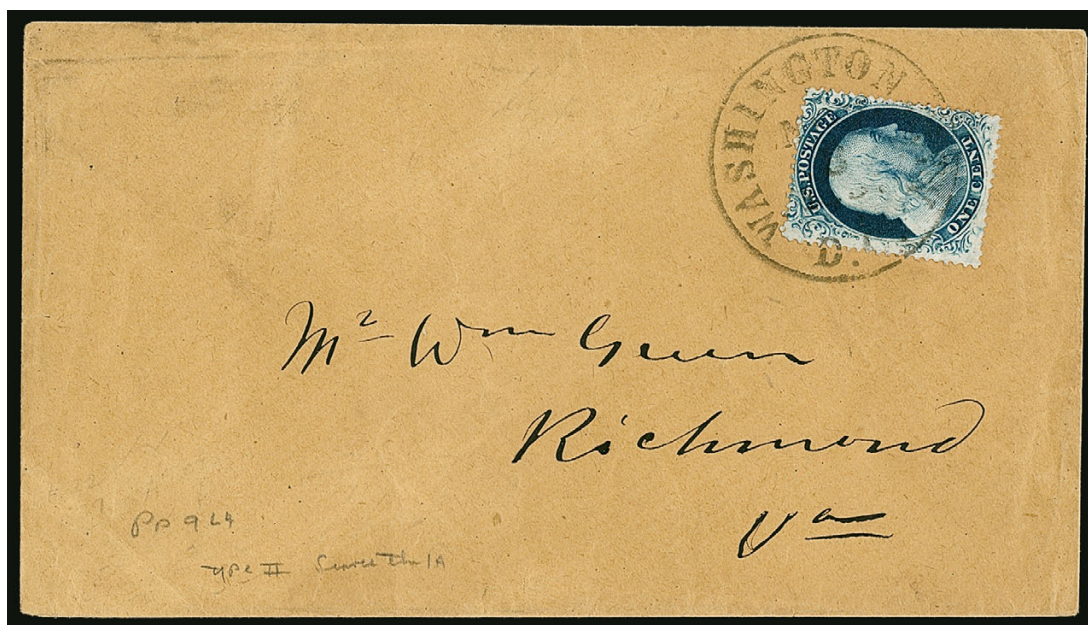 WASHINGTON
D.
U.S. POSTAGE
ONE CENT
Mr Wm Green
Richmond
Va
Pp 9 L4
Type II Scarcer than 1A